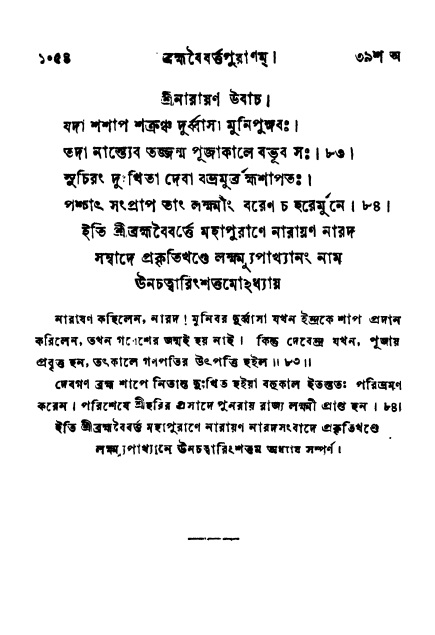 ১০৫৪ ব্রহ্মবৈবর্ত্তপুরাণম্। ৩৯শ অ
শ্রীনারায়ণ উবাচ।
যদা শশাপ শক্রঞ্চ দুর্ব্বাসা মুনিপুঙ্গবঃ।
তদা নাস্ত্যেব তজ্জন্ম পূজাকালে বভূব সঃ। ৮৩।
সুচিরং দুঃখিতা দেবা বভ্রমুর্ব্রহ্মশাপতঃ।
পশ্চাৎ সংপ্রাপ তাং লক্ষ্মীং বরেণ চ হরের্মুনে। ৮৪।
ইতি শ্রীব্রহ্মবৈবর্ত্তে মহাপুরাণে নারায়ণ নারদ
সম্বাদে প্রকৃতিখণ্ডে লক্ষ্ম্যুপাখ্যানং নাম
ঊনচত্বারিংশত্তমোঽধ্যায়
নারায়ণ কহিলেন, নারদ! মুনিবর দুর্ব্বাসা যখন ইন্দ্রকে শাপ প্রদান
করিলেন, তখন গণেশের জন্মই হয় নাই। কিন্তু দেবেন্দ্র যখন, পূজায়
প্রবৃত্ত হন, তৎকালে গণপতির উৎপত্তি হইল॥৮৩॥
দেবগণ ব্রহ্ম শাপে নিতান্ত দুঃখিত হইয়া বহুকাল ইতস্ততঃ পরিভ্রমণ
করেন। পরিশেষে শ্রীহরির প্রসাদে পুনরায় রাজ্য লক্ষ্মী প্রাপ্ত হন। ৮৪।
ইতি শ্রীব্রহ্মবৈবর্ত্ত মহাপুরাণে নারায়ণ নারদসংবাদে প্রকৃতিখণ্ডে
লক্ষ্ম্যুপাখ্যানে ঊনচত্বারিংশত্তম অধ্যায় সম্পূর্ণ।